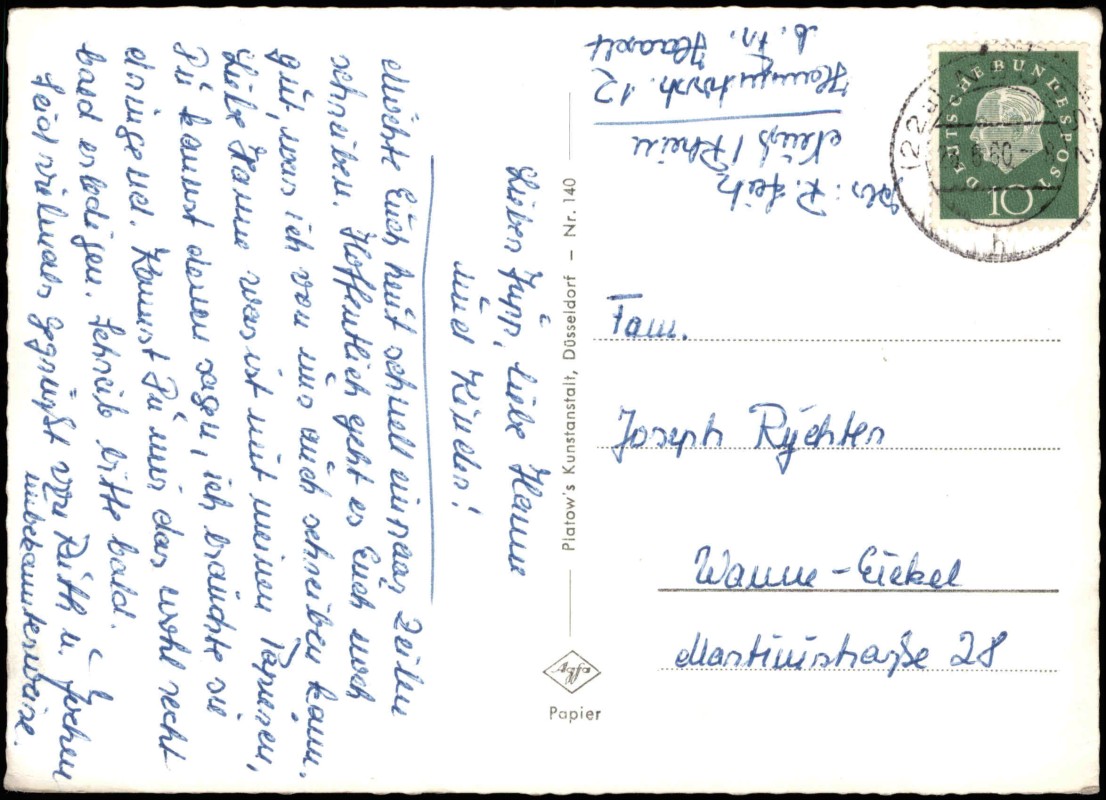 Lieber Jupp, liebe Hanne
und Kinder!
Möchte Euch heut schnell ein paar Zeilen
schreiben. Hoffentlich geht es Euch noch
gut, was ich von uns auch schreiben kann.
Liebe Hanne was ist mit meinen Papieren,
Du kannst denen sagen, ich bräuchte sie
dringend. Kannst Du mir das wohl recht
bald erledigen. Schreib bitte bald.
Seid vielmals gegrüßt von Ruth u. Jochen
unbekannterweise.
Platow's Kunstanstalt, Düsseldorf – Nr. 140
Agfa
Papier
Abs: R.
Neuß / Rhein
12
b. Fr.
DEUTSCHE BUNDESPOST
10
(22
60
h
Fam.
Joseph Rychter
Wanne-Eickel
Martinistraße 28